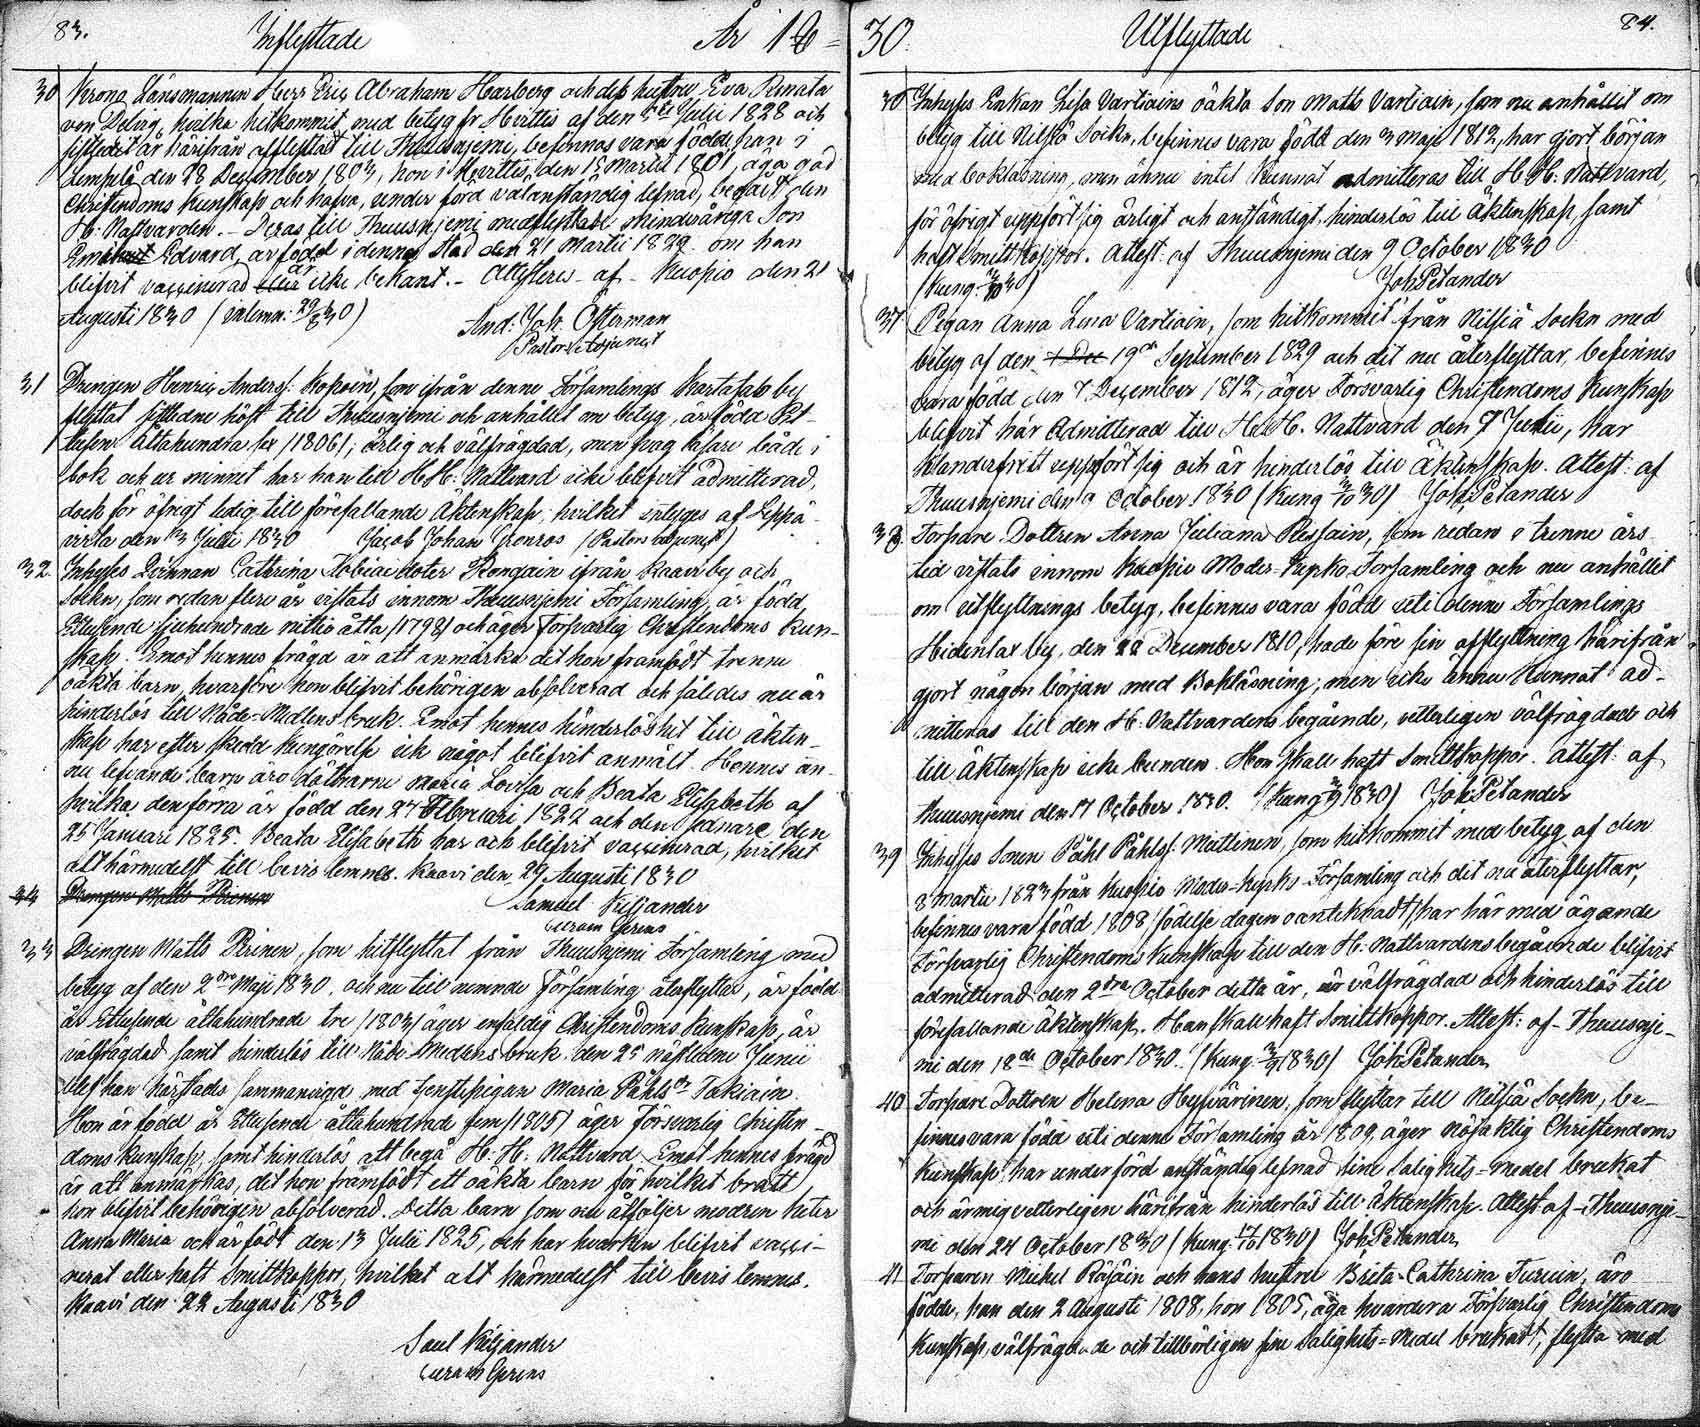 83. Inflyttade År 18=
30 Krono Länsmannen Herr Eric Abraham Harberg och dess hustru Eva Renata
von Delvig, hvilka hitkommit med betyg fr Hvittis af den Julii 1828 och
härifrån afflyttat till Thuusnjemi, befinnas vara födde, han i
Lempälä den 28 December 1803, hon i Hvittis den 15 Martii 1801, äga god
Christendoms kunskap och hafva, under förd välanständig lefnad, begått den
H. Nattvarden. – Deras till Thuusnjemi medflyttade minderåriga Son
Edvard, är född i denna Stad den 21 Martii 1829. om han
blifvit vaccinerad är icke bekant. – Attesteres af – Kuopio den 21
Augusti 1830 (inlemn: 29/8 30)
And: Joh. Österman
Pastors Adjunct
31 Drengen Henric Anderss: Kokoin, som ifrån denne Församlings Kartasalo by
flyttat sistledne höst till Thuusnjemi och anhållit om betyg, är född Et-
tusen Åttahundra sex (1806), ärlig och välfrägdad, men svag läsare både i
bok och ur minnet har han till HH: Nattvard icke blifvit admitterad,
dock för öfrigt ledig till förefallande Äktenskap; hvilket intygas af Leppä-
virta den Julii 1830 Jacob Johan Cronros (Pastors adjunct)
32. Inhyses Qvinnan Cathrina Tobiae doter Rongain ifrån Kaavi by och
Sockn, som redan flere år vistats innom Thuusnjemi Församling, är född
Ettusende sjuhundrade nittio åtta (1798) och äger försvarlig Christendoms kun-
skap. Emot hennes frägd är att anmärka det hon framfödt trenne
oäkta barn, hvarföre hon blifvit behörigen absolverad och således nu är
hinderlös till Nåde-Medlens bruk. Emot hennes hinderlöshet till äkten-
skap har efter skedd kungörelse ick något blifvit anmält. Hennes än-
nu lefvande barn äro döttrarne Maria Lovisa och Beata Elisabeth af
hvilka den förra är född den 27 Februari 1822 och den sednare den
25 Januari 1825. Beata Elisabeth har och blifvit vaccinerad, hvilket
allt härmedelst till bevis lemnes. Kaavi den 29 Augusti 1830
34 Drengen Matts Pirinen
Samuel Kiljander
curam gerens
33 Drengen Matts Pirinen, som hitflyttat från Thuusnjemi Församling med
betyg af den 2dra Maji 1830, och nu till nemnde Församling återflyttar, är född
år Ettusende åttahundrade tre (1803) äger enfaldig Christendoms kunskap, är
välfrägdad samt hinderlös till Nåde-Medlens bruk. den 25 nästledne Junii
blef han härstädes sammanvigd med Jenstepigan Maria Påhlsdr Takiain.
Hon är född år Ettusende åttahundrade fem (1805) äger försvarlig Christen-
doms kunskap, samt hinderlös att begå H: H: Nattvard. Emot hennes frägd
är att anmärkas, det hon framfödt ett oäkta barn för hvilket brott
hon blifvit behörigen absolverad. Detta barn som nu åtföljer modren heter
Anna Maria och är född den 13 Julii 1825, och har hvarken blifvit vacci-
nerat eller haft Smittkoppor, hvilket alt härmedelst till bevis lemnes.
Kaavi den 22 Augusti 1830
Saul Kiljander
curam gerens
30. Utflyttade 84.
36 Inhyses Enkan Lisa Vartiains oäkta Son Matts Vartiain, som nu anhållit om
betyg till Nilsiä Sockn, befinnes vara född den 3 Maji 1812, har gjort början
med bokläsning, men ännu intet kunnat admitteras till H.H: Nattvard,
för öfrigt uppfört sig ärligt och anständigt, hinderlös till äktenskap, samt
haft Smittkoppor. Attest: af Thuusnjemi den 9 October 1830
(Kung: 3/10 30) Joh: Petander
37 Pigan Anna Lisa Vartiain, som hitkommit från Nilsiä Sockn med
betyg af den 19de September 1829 och dit nu återflyttar, befinnes
vara född den 7 December 1812, äger Försvarlig Christendoms Kunskap
blifvit här admitterad till H.H. Nattvard den 7 Junii, har
klanderfritt uppfört sig och är hinderlös till Äktenskap. Attest: af
Thuusnjemi den 9 October 1830 (Kung 3/10 30) Joh: Petander
38. Torpare Dottren Anna Juliana Ressain, som redan i trenne års
tid vistats innom Kuopio Moder-Kyrko Församling och nu anhållit
om utflyttnings betyg, befinnes vara född uti denne Församlings
Hidenlax by, den 22 December 1810, hade före sin afflyttning härifrån
gjort någon början med Bokläsning; men icke ännu kunnat ad-
mitteras till den H: Nattvardens begående, vetterligen välfrägdad och
till äktenskap icke bunden. Hon skall haft Smittkoppor. Attest: af
Thuusnjemi den 17 October 1830. (Kung 1830) Joh: Petander
39 Inhyses Sonen Påhl Påhlss: Mattinen, som hitkommit med betyg af den
8 Martii 1823 från Kuopio Moder-Kyrko Församling och dit nu återflyttar,
befinnes vara född 1808 (födelse dagen oantecknadt) har här med ägande
Försvarlig Christendoms Kunskap till den H: Nattvardens begående blifvit
admitterad den 2dra October detta år, är välfrägdad och hinderlös till
förefallande äktenskap. Han skall haft Smittkoppor. Attest: af Thuusnje-
mi den 18de October 1830. (Kung: 1830) Joh: Petander
40 Torpare Dottren Helena Hyvärinen, som flyttar till Nilsiä Sockn, be-
finnes vara född uti denne Församling år 1809, äger nöjaktig Christendoms
Kunskap, har under förd anständig lefnad sine Salighets-medel brukat
och är mig vetterligen härifrån hinderlös till äktenskap. Attest: af Thuusnje-
mi den 24 October 1830 (Kung: 17/10 1830) Joh: Petander
41 Torparen Mickel Räsäin och hans hustru Brita Cathrina Turuin, äro
födde, han den 2 Augusti 1808, hon 1805, äga hvardera Försvarlig Christendoms
Kunskap, välfrägdade och tillbörligen sine Salighets-Medel brukadt, flytta med